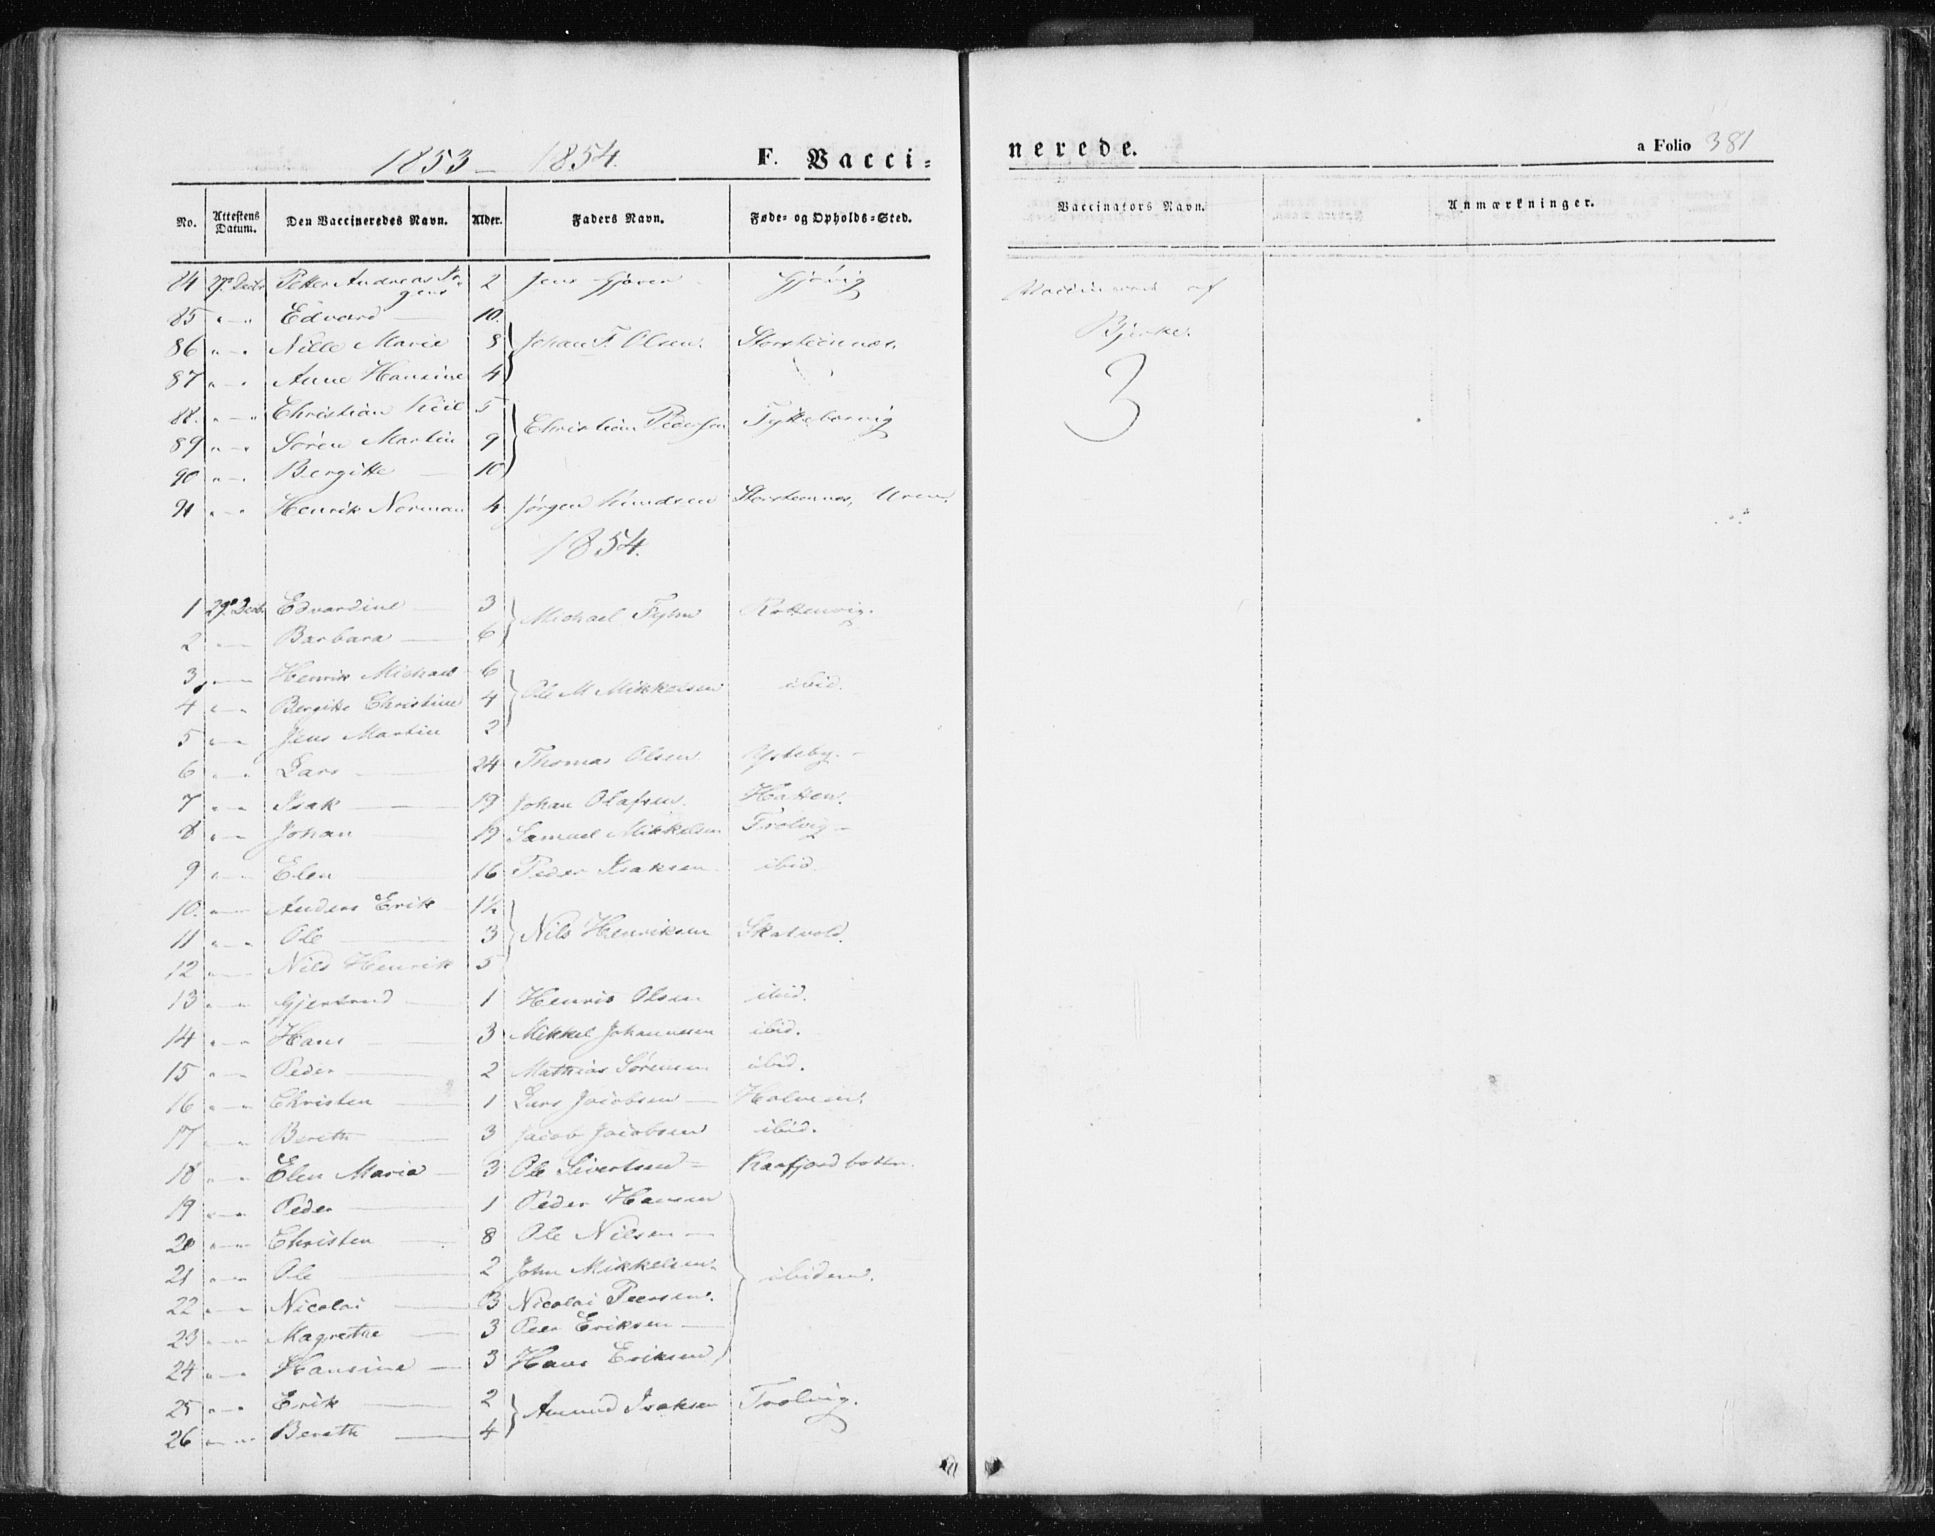 1853 - 1854. F. Vacci=
nerede. a Folio 381
No. Attestens Datum. Den Vaccineredes Navn. Alder. Faders Navn. Føde= og Opholds=Sted. Vaccinators Navn. Anmærkninger.
84 27de Decbr Petter Andreas 2 Jens Gjøvig
85 " — " Edvard — 10.
86 " — " Nille Marie 8 Johan F. Olsen. Storsteennæs.
87 " — " Anne Hansine 4
88. " — " Christian Kiil 5
89 " — " Sören Martin 9 Christian Pedersen Tyttebærvig
90 " — " Bergitte — 10
91 " — " Henrik Norman 4 Jørgen Knudsen Storsteennes,
Vaccineret af
Bjerke.
3
1854.
1 29de Decbr Edvardine — 3 Michael Fyhn Kottenvig.
2 " — " Barbara — 6
3 " — " Henrik Michael 6
4 " — " Bergitte Christine 4 Ole M Mikkelsen ibid.
5 " — " Jens Martin 2
6 " — " Lars — 24 Thomas Olsen Ysteby. —
7 " — " Isak — 19 Johan Olafsen. Hatten.
8 " — " Johan — 19 Samuel Mikkelsen Trolvig —
9 " — " Elen — 16 Peder Isaksen ibid.
10. " — " Anders Erik — 1½
11 " — " Ole — 3 Nils Henriksen Skatvold.
12 " — " Nils Henrik 5
13 " — " Gjertrud — 1 Henrik Olsen ibid.
14 " — " Hans — 3 Mikkel Johannesen ibid.
15 " — " Peder — 2 Mathias Sørensen ibid.
16 " — " Christen — 1 Lars Jacobsen — Holmen.
17 " — " Bereth — 3 Jacob Jacobsen ibid.
18 " — " Elen Maria — 3 Ole Sivertsen — Kaafjordbotn.
19 " — " Peder — 1 Peder Hansen
20 " — " Christen — 8 Ole Nilsen —
21 " — " Ole — 2 John Mikkelsen. ibidem.
22 " — " Nicolai — 3 Nicolai Peersen.
23 " — " Magrethe — 3 Peer Eriksen —
24 " — " Hansine — 3 Hans Eriksen
25 " — " Erik — 2 Amund Isaksen Trolvig.
26 " — " Bereth — 4